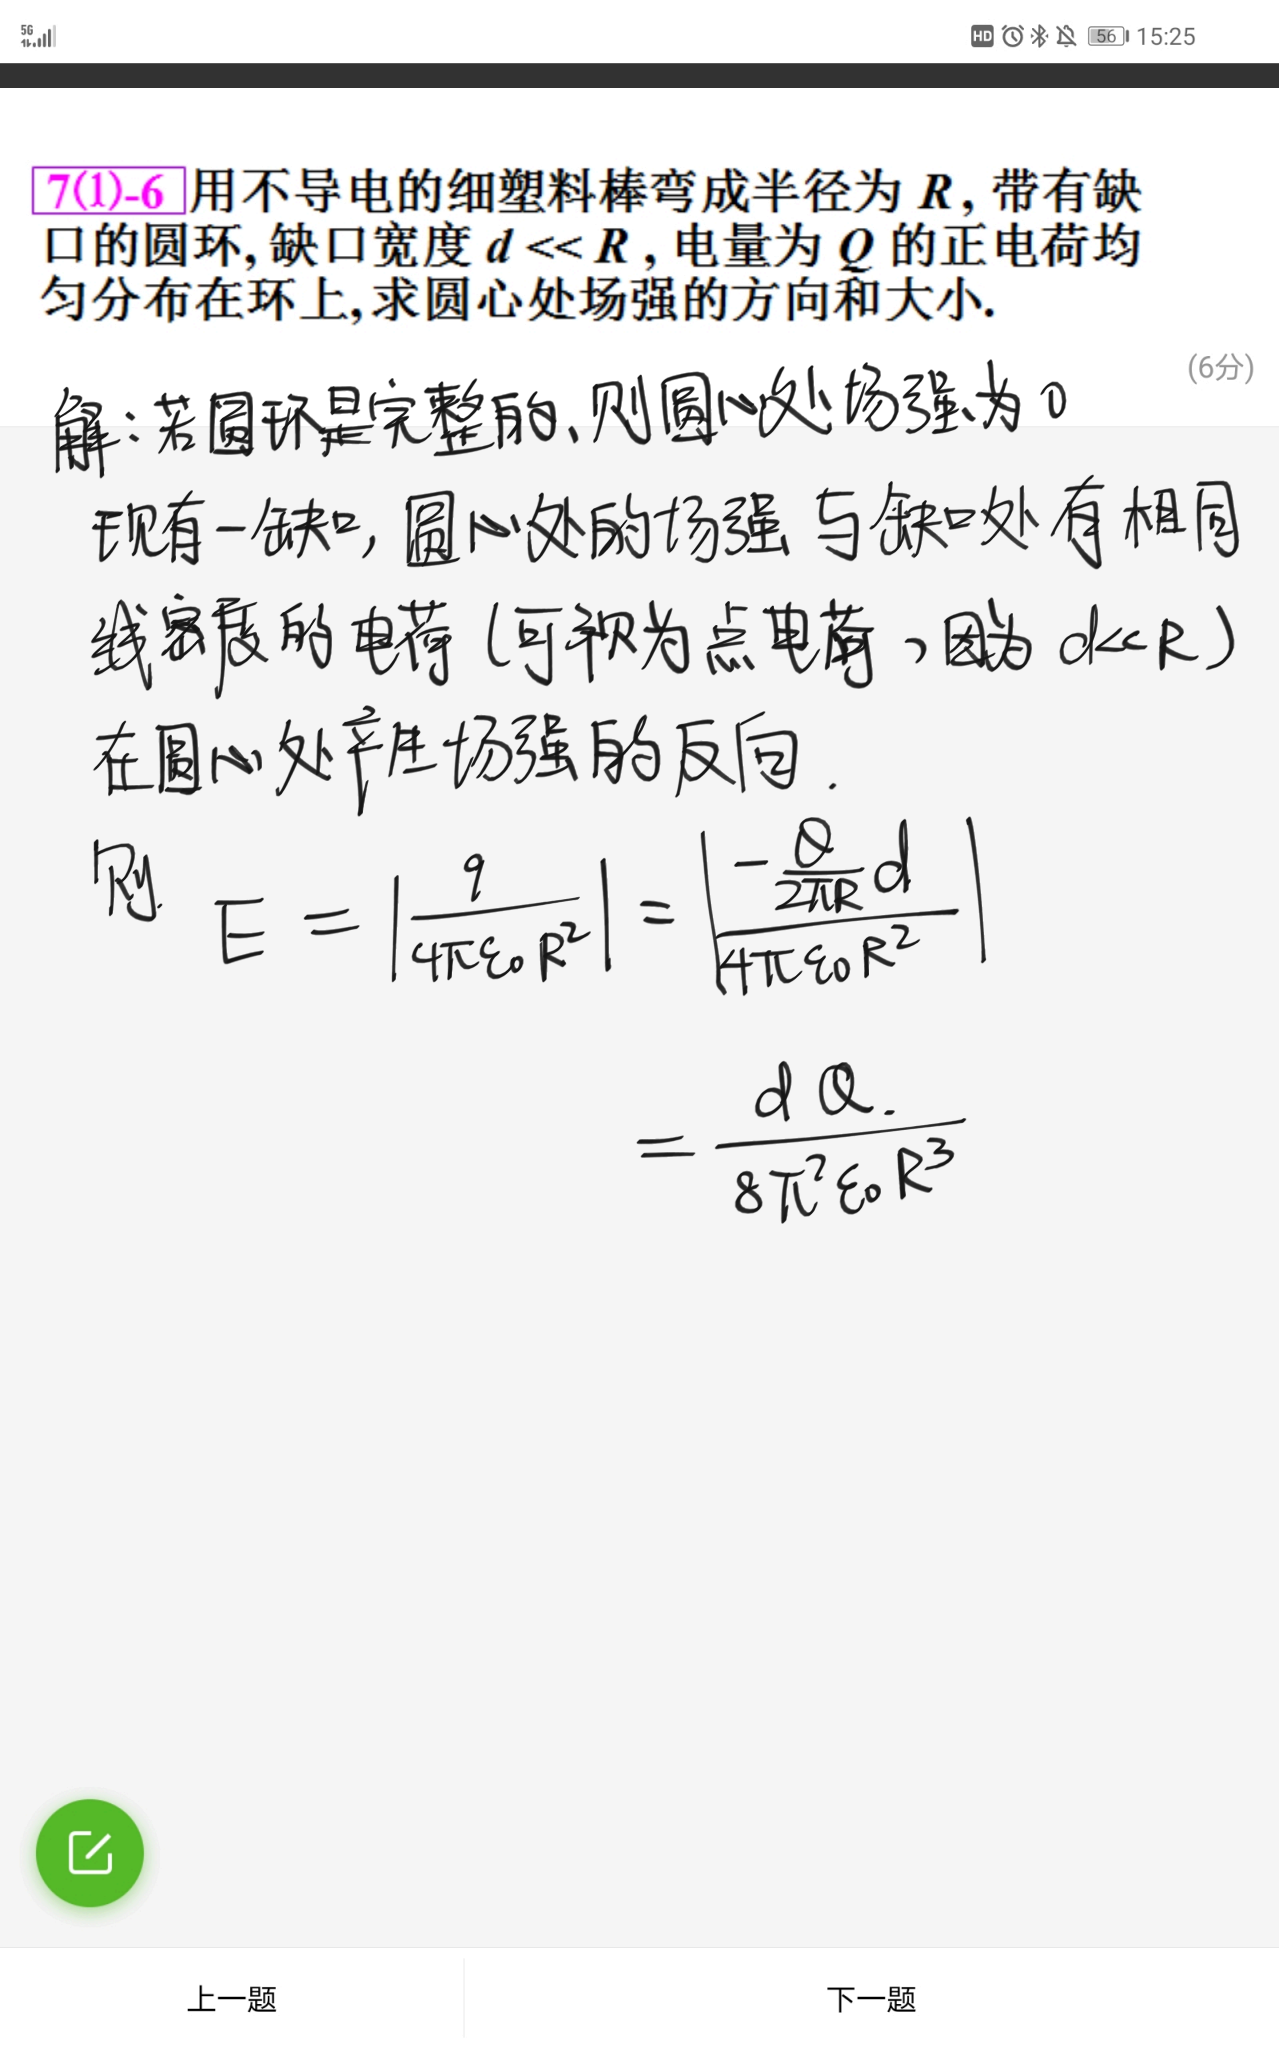 5G
HD 56 15:25
7(1)-6 用不导电的细塑料棒弯成半径为 R, 带有缺
口的圆环, 缺口宽度 d << R , 电量为 Q 的正电荷均
匀分布在环上, 求圆心处场强的方向和大小.
(6分)
解:若圆环是完整的、则圆心处场强为0
现有一缺口, 圆心处的场强与缺口处有相同
线密度的电荷(可视为点电荷,因为 d<<R)
在圆心处产生场强的反向.
则. E = |q/(4πε₀R²)| = |(-Q/(2πR) d)/(4πε₀R²)|
= dQ./(8π²ε₀R³)
上一题 下一题